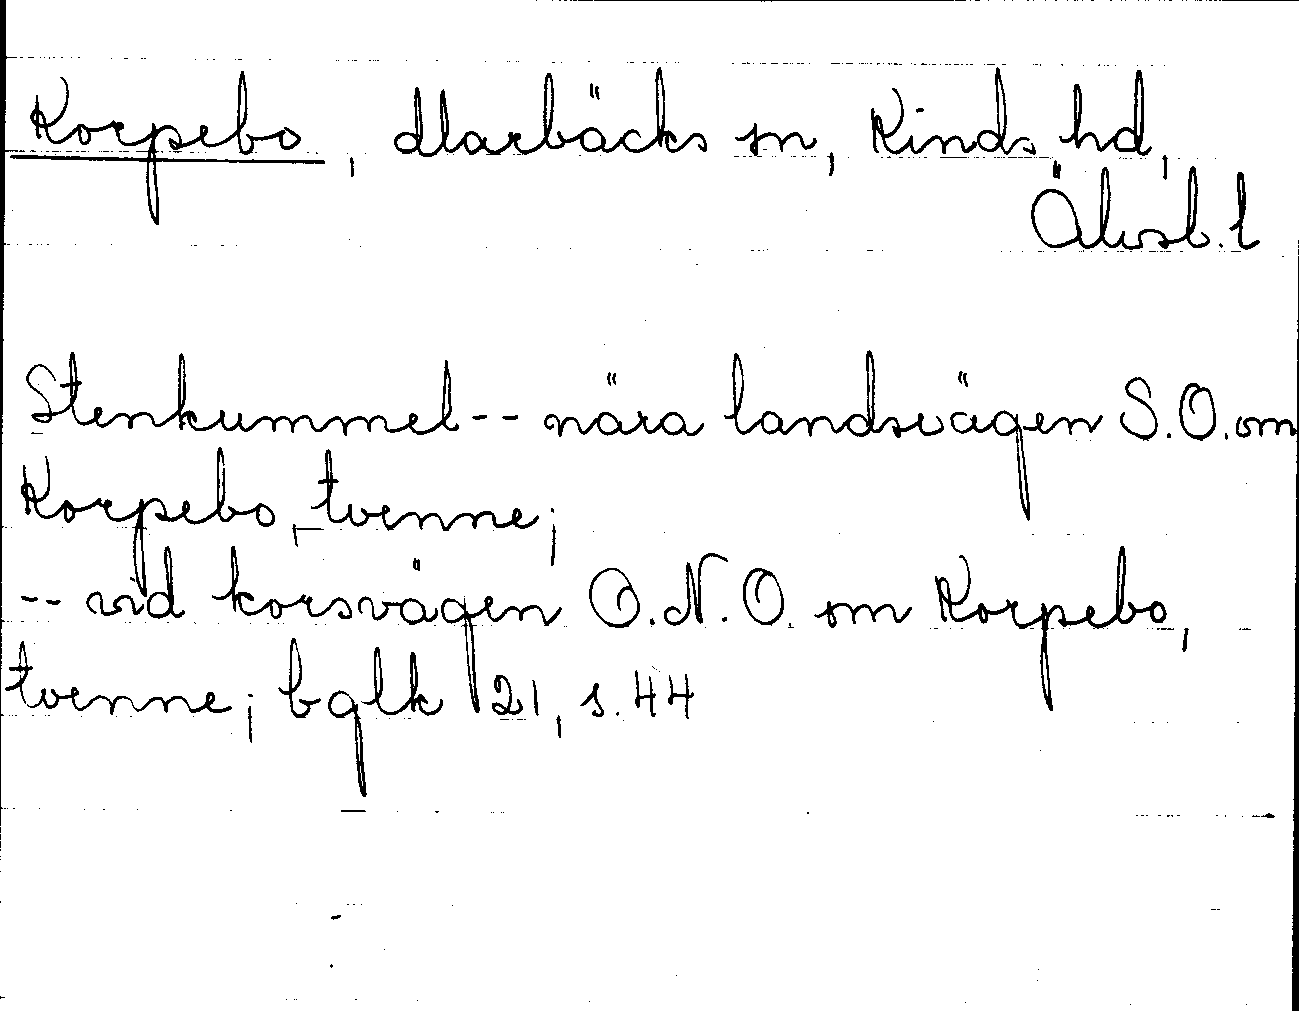 Korpebo, Marbäcks sn, Kinds hd,
Älvsb. l
Stenkummel -- nära landsvägen S.O. om
Korpebo, tvenne;
-- vid korsvägen O.N.O. om Korpebo,
tvenne; bglk 21, s. 44